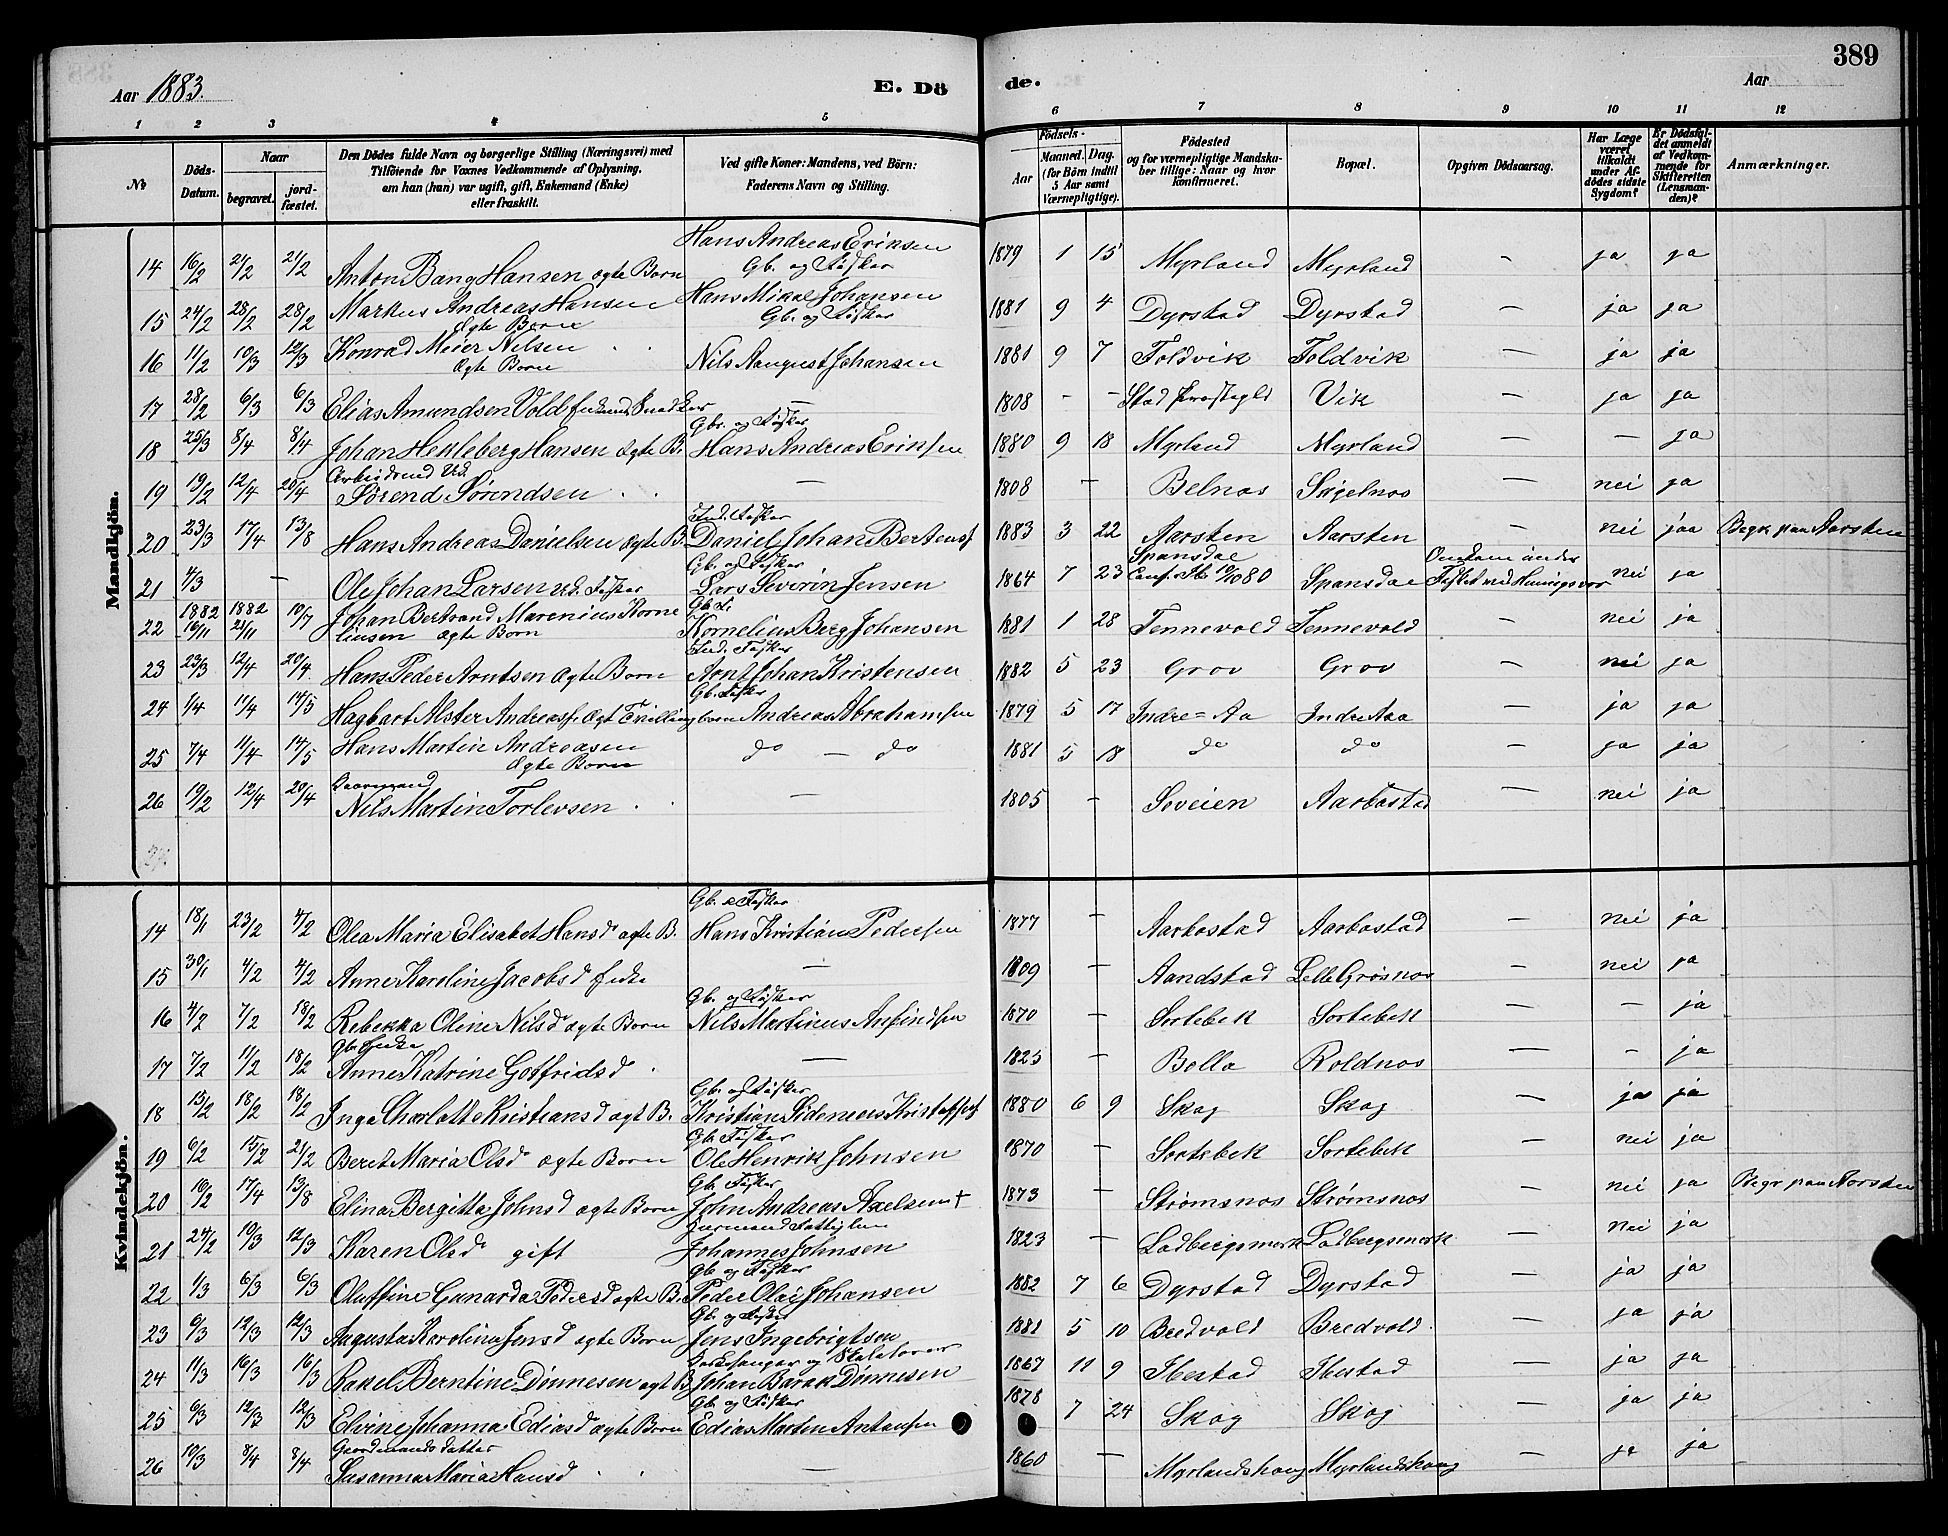 389
Aar 1883. E. Dö de. Aar
1 2 3 4 5 6 7 8 9 10 11 12
No
Döds-Datum.
Naar begravet. jordfæstet.
Den Dödes fulde Navn og borgerlige Stilling (Næringsvei) med Tilföiende for Voxnes Vedkommende af Oplysning, om han (hun) var ugift, gift, Enkemand (Enke) eller fraskilt.
Ved gifte Koner: Mandens, ved Börn: Faderens Navn og Stilling.
Födsels-
Aar
Maaned. Dag. (for Börn indtil 5 Aar samt Værnepligtige).
Födested og for værnepligtige Mandskaber tillige: Naar og hvor konfirmeret.
Bopæl.
Opgiven Dödsaarsag.
Har Læge været tilkaldt under Afdödes sidste Sygdom?
Er Dödsfaldet anmeldt af Vedkommende for Skifteretten (Lensmanden)?
Anmærkninger.
Mandkjön.
14 16/2 21/2 21/2 Anton Bang Hansen ægte Barn Hans Andreas Eriksen Gb. og Fisker 1879 1 15 Myrland Myrland - ja ja
15 24/2 28/2 28/2 Markus Andreas Hansen ægte Barn Hans Mikal Johansen Gb. og Fisker 1881 9 4 Dyrstad Dyrstad — ja ja
16 11/2 10/3 12/3 Konrad Meier Nilsen ægte Barn Nils Aaugust Johansen 1881 9 7 Foldvik Foldvik — ja ja
17 28/2 6/3 6/3 Elias Amundsen Vold — 1808 - - Vik — ja ja
18 25/3 8/4 8/4 Johan Hekleberg Hansen ægte B. Gbr. og Fisker Hans Andreas Eriksen 1880 9 18 Myrland Myrland — - ja
19 19/2 12/4 20/4 Sörend Sörendsen — 1808 - Belnæs — nei ja
20 23/3 17/4 13/8 Hans Andreas Danielsen ægte B. Ind. Fisker Daniel Johan Bertens. 1883 3 22 Aarsten Aarsten - nei jaa Begr. paa Aarsten
21 4/3 - Ole Johan Larsen Ud. Fisker Gb. og Fisker Lars Severin Jensen 1864 7 23 Spansdal Spansdal Omkom under Fisket nei ja
22 1882 19/11 1882 21/11 10/7 Johan Bertrand Marenius Korneliusen ægte Barn Gb. F. Kornelius Berg Johansen 1881 1 28 Tennevold Tennevold - nei ja
23 23/3 12/4 20/4 Hans Peder Arntsen ægte Barn Ind. Fisker Arnt Johan Kristensen 1882 5 23 Grov Grov - nei ja
24 1/4 11/4 14/5 Hagbart Alster Andreass. ægt Tvillingbarn Gb. Fisker Andreas Abrahamsen 1879 5 17 Indre=Aa Indre Aaa - ja ja
25 7/4 11/4 14/5 Hans Martin Andreasen ægte Barn do — do 1881 5 18 do do - ja ja
26 19/2 12/4 20/4 Nils Martin Torlevsen — 1805 - Soveien Aarbostad — nei ja
Kvindekjön.
14 18/1 23/2 4/2 Olea Maria Elisabet Hansd ægte B. Gb. & Fisker Hans Kristian Pedersen 1877 - Aarbostad Aarbostad — nei ja
15 30/1 4/2 4/2 Anne Karoline Jacobsd Enke — 1809 - Aandstad Lille Grøsnæs - nei ja
16 4/2 7/2 18/2 Rebekka Oline Nilsd ægte Barn Gb. og Fisker Nils Martinus Arsindsen 1870 - Sortebek Sortebek — - ja
17 7/2 11/2 18/2 Gbr. Enke Anne Katrine Gotfridsd — 1825 - Bolla Roldnæs — - ja
18 13/2 18/2 18/2 Inga Charlotte Kristiansd ægt B. Gb. og Fisker Kristian Sidenius Kristoffers. 1880 6 9 Skog Skog — ja ja
19 6/2 15/2 21/2 Beret Maria Olsd ægte Barn Gb. Fisker Ole Henrik Johnsen 1870 - Sortebek Sortebek — nei ja
20 10/2 17/4 13/8 Elina Bergitta Johnsd ægte Barn Gb. Fisker John Andreas Axelsen + 1873 - Strømsnæs Strømsnæs — nei ja Begr. paa Aarsten
21 24/2 10/3 12/3 Karen Olsd gift Johannes Johnsen 1823 - Ladbergsmark Ladbergsmark — nei ja
22 1/3 6/3 6/3 Oluffine Gunarda Pedersd ægte B. Gb. og Fisker Peder Olai Johansen 1882 7 6 Dyrstad Dyrstad — ja ja
23 6/3 12/3 12/3 Augusta Karolina Jensd ægte Barn Gb. og Fisker Jens Ingebrigtsen 1881 5 10 Bredvold Bredvold. — ja ja
24 11/3 16/3 16/3 Rakel Berntine Dønnesen ægt B. Kirkesanger og Skolelærer Johan Barak Dønnesen 1867 11 9 Ibestad Ibestad — ja ja
25 6/3 12/3 12/3 Elvine Johanna Ediasd ægte Barn Gb. og Fisker Edias Marten Antonsen 1878 7 24 Skog Skog — ja ja
26 10/3 8/4 8/4 Gaardmands datter Susanna Maria Hansd — 1860 - Myrlandshaug Myrlandshaug — ja ja